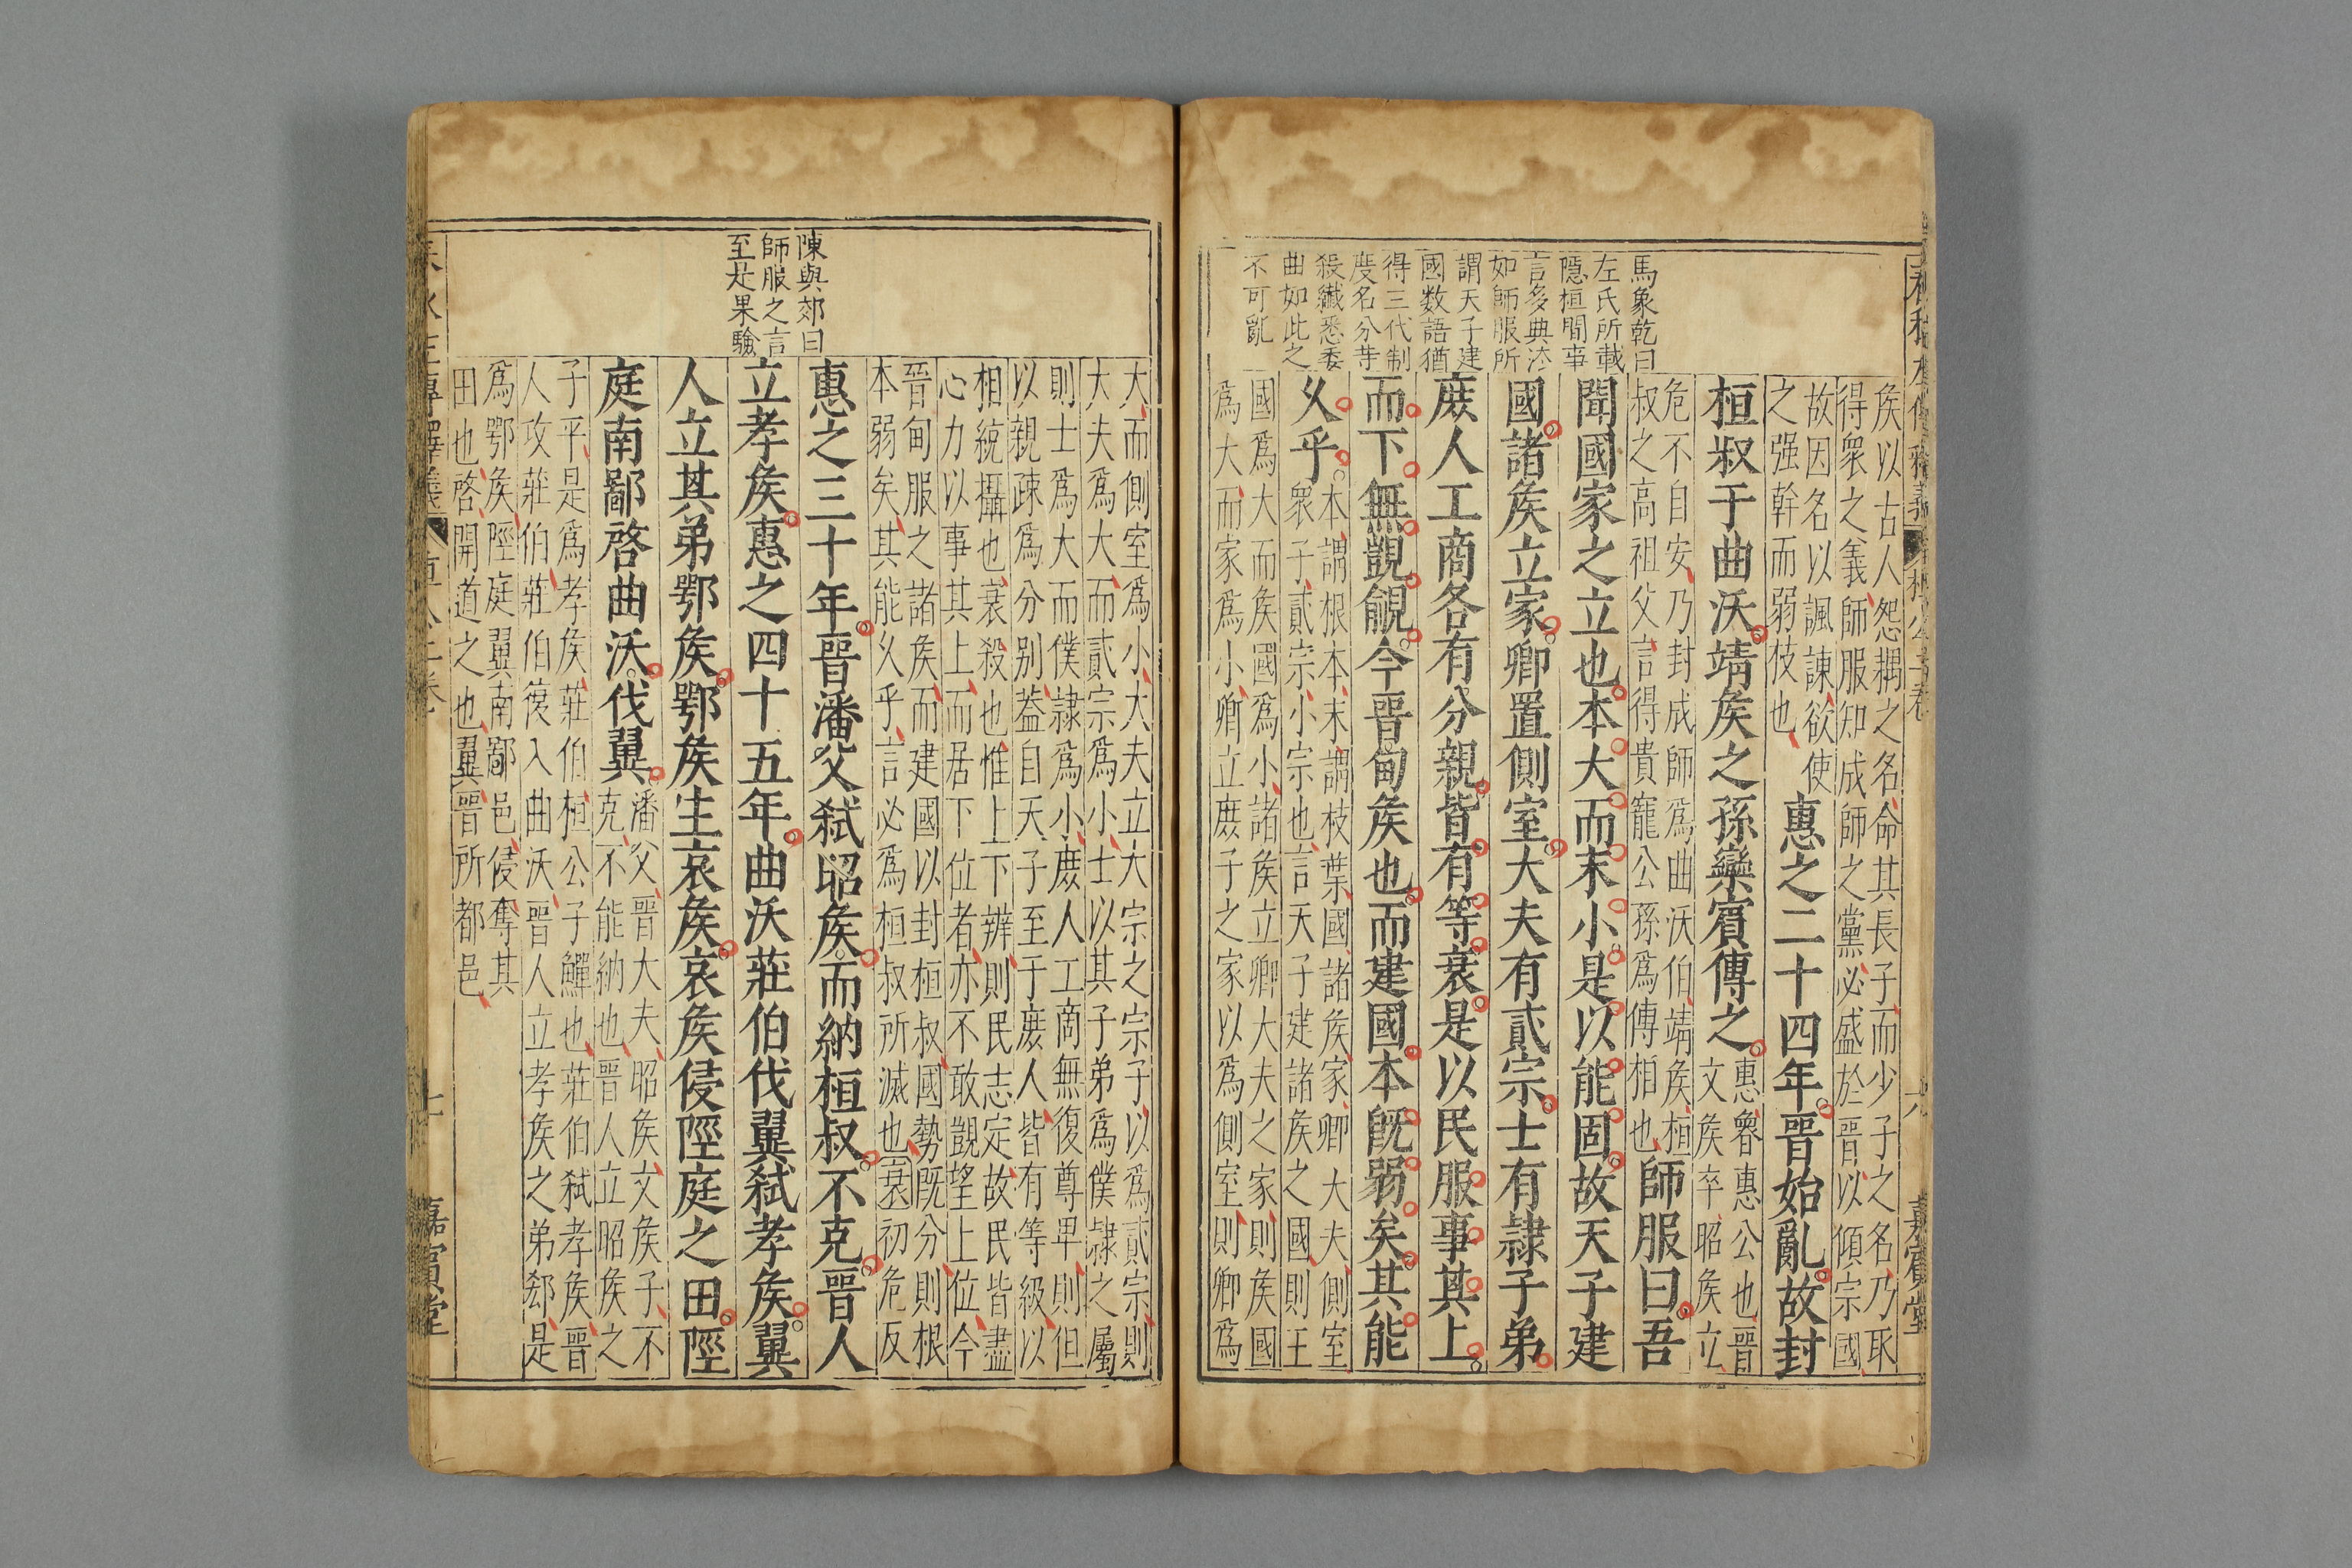 馬象乾曰
左氏所載
隱桓間事
言多典
如師服所
謂天子建
國数語猶
得三代制
度名分等
殺纎悉委
曲如此之
不可亂
矦以古人怨耦之名命其長子而少子之名乃取
得衆之義師服知成師之黨必盛於晉以傾宗國
故因名以諷諫欲使
之强幹而弱枝也
惠之二十四年晉始亂故封
桓叔于曲沃靖矦之孫欒賓傅之
惠魯惠公也晉
文矦卒昭矦立
危不自安乃封成師爲曲沃伯靖矦桓
叔之高祖父言得貴寵公孫爲傅相也
師服曰吾
聞國家之立也本大而末小是以能固故天子建
國諸矦立家卿置側室大夫有貳宗士有隷子弟
庶人工商各有分親皆有等衰是以民服事其上
而下無覬覦今晉甸矦也而建國本旣弱矣其能
乆乎
本謂根本末謂枝葉國諸矦家卿大夫側室
衆子貳宗小宗也言天子建諸矦之國則王
國爲大而矦國爲小諸矦立卿大夫之家則矦國
爲大而家爲小卿立庶子之家以爲側室則卿爲
春秋左傳釋義 桓公二卷 六 嘉賓堂
陳與郊曰
師服之言
至此果驗
大而側室爲小大夫立大宗之宗子以爲貳宗則
大夫爲大而貳宗爲小士以其子弟爲僕隷之屬
則士爲大而僕隷爲小庶人工商無復尊卑則但
以親疎爲分别葢自天子至于庶人皆有等級以
相統攝也衰殺也惟上下辨則民志定故民皆盡
心力以事其上而居下位者亦不敢覬望上位今
晉甸服之諸矦而建國以封桓叔國勢旣分則根
本弱矣其能乆乎言必爲桓叔所滅也衰初危反
惠之三十年晉潘父弑昭矦而納桓叔不克晉人
立孝矦惠之四十五年曲沃莊伯伐翼弑孝矦翼
人立其弟鄂矦鄂矦生哀矦哀矦侵陘庭之田陘
庭南鄙啓曲沃伐翼
潘父晉大夫昭矦文矦子不
克不能納也晉人立昭矦之
子平是爲孝矦莊伯桓公子鱓也莊伯弑孝矦晉
人攻莊伯莊伯復入曲沃晉人立孝矦之弟郄是
爲鄂矦陘庭翼南鄙邑侵奪其
田也啓開道之也翼晉所都邑
春秋左傳釋義 桓公二卷 七 嘉賓堂